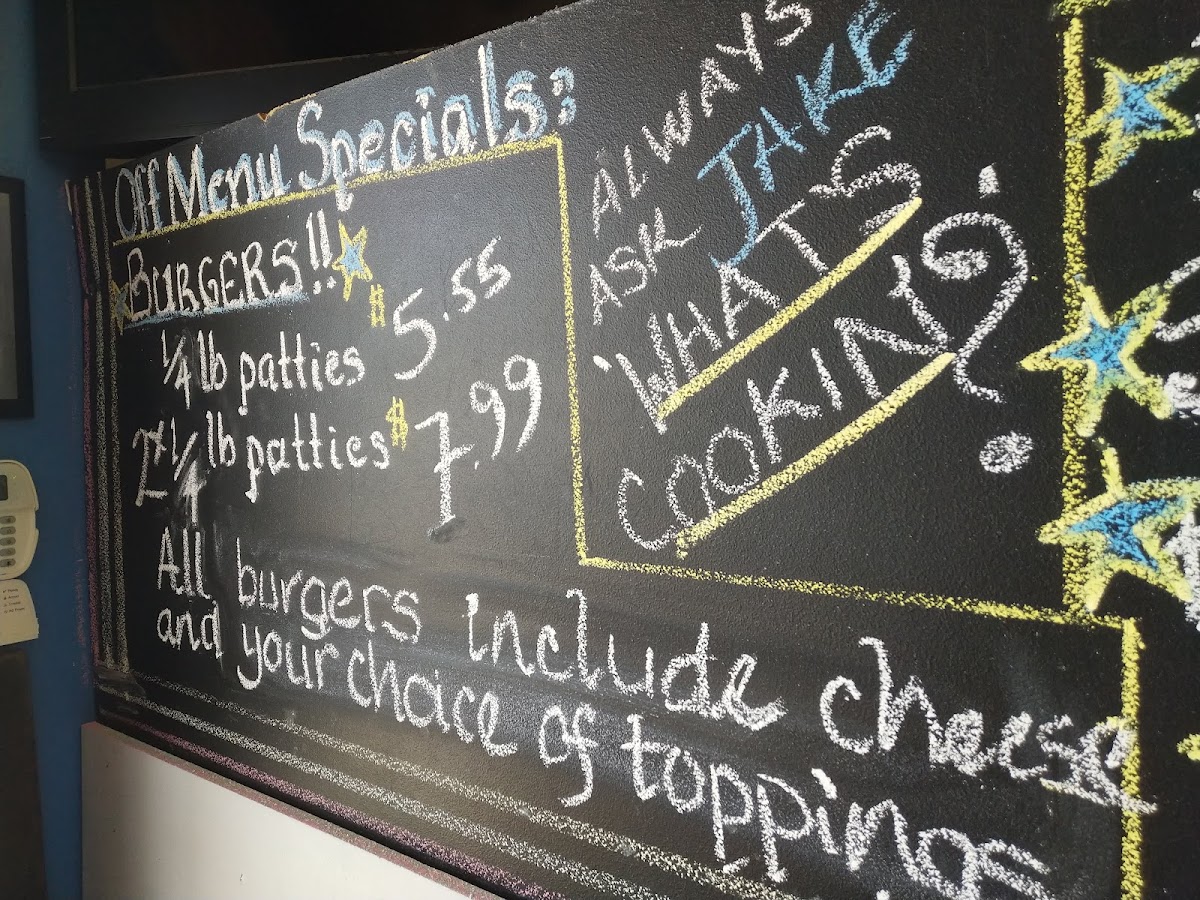 Off Menu Specials:
BURGERS!!
1/4 lb patties $5.55
2x 1/4 lb patties $7.99
All burgers include cheese
and your choice of toppings
ALWAYS
ASK JAKE
'WHATS
COOKIN'?